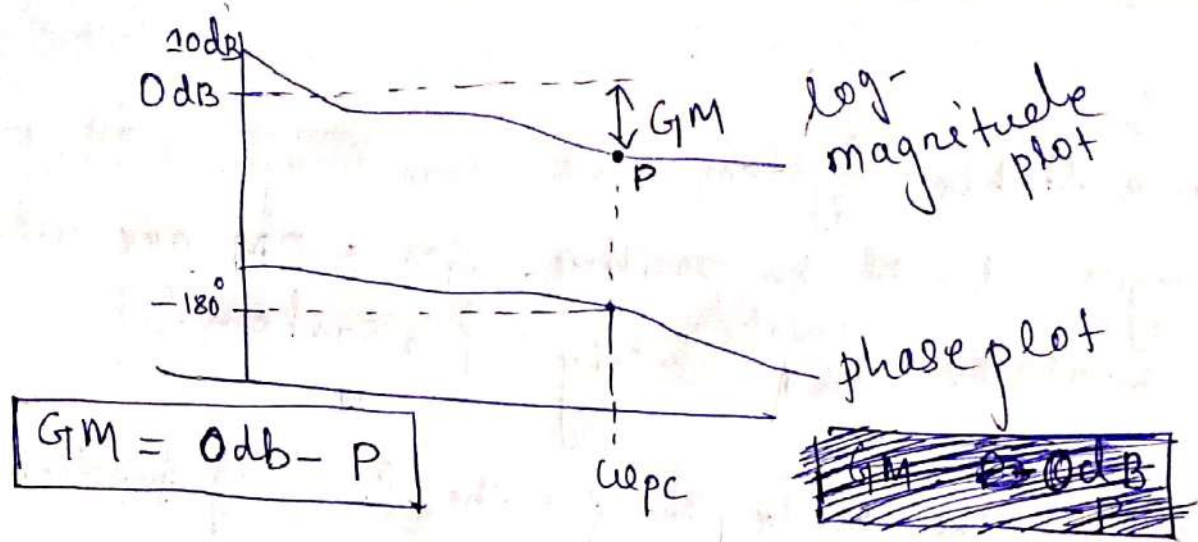 10dB
0dB
GM
P
log-
magnitude
plot
-180°
phase plot
GM = 0db - P
ωpc